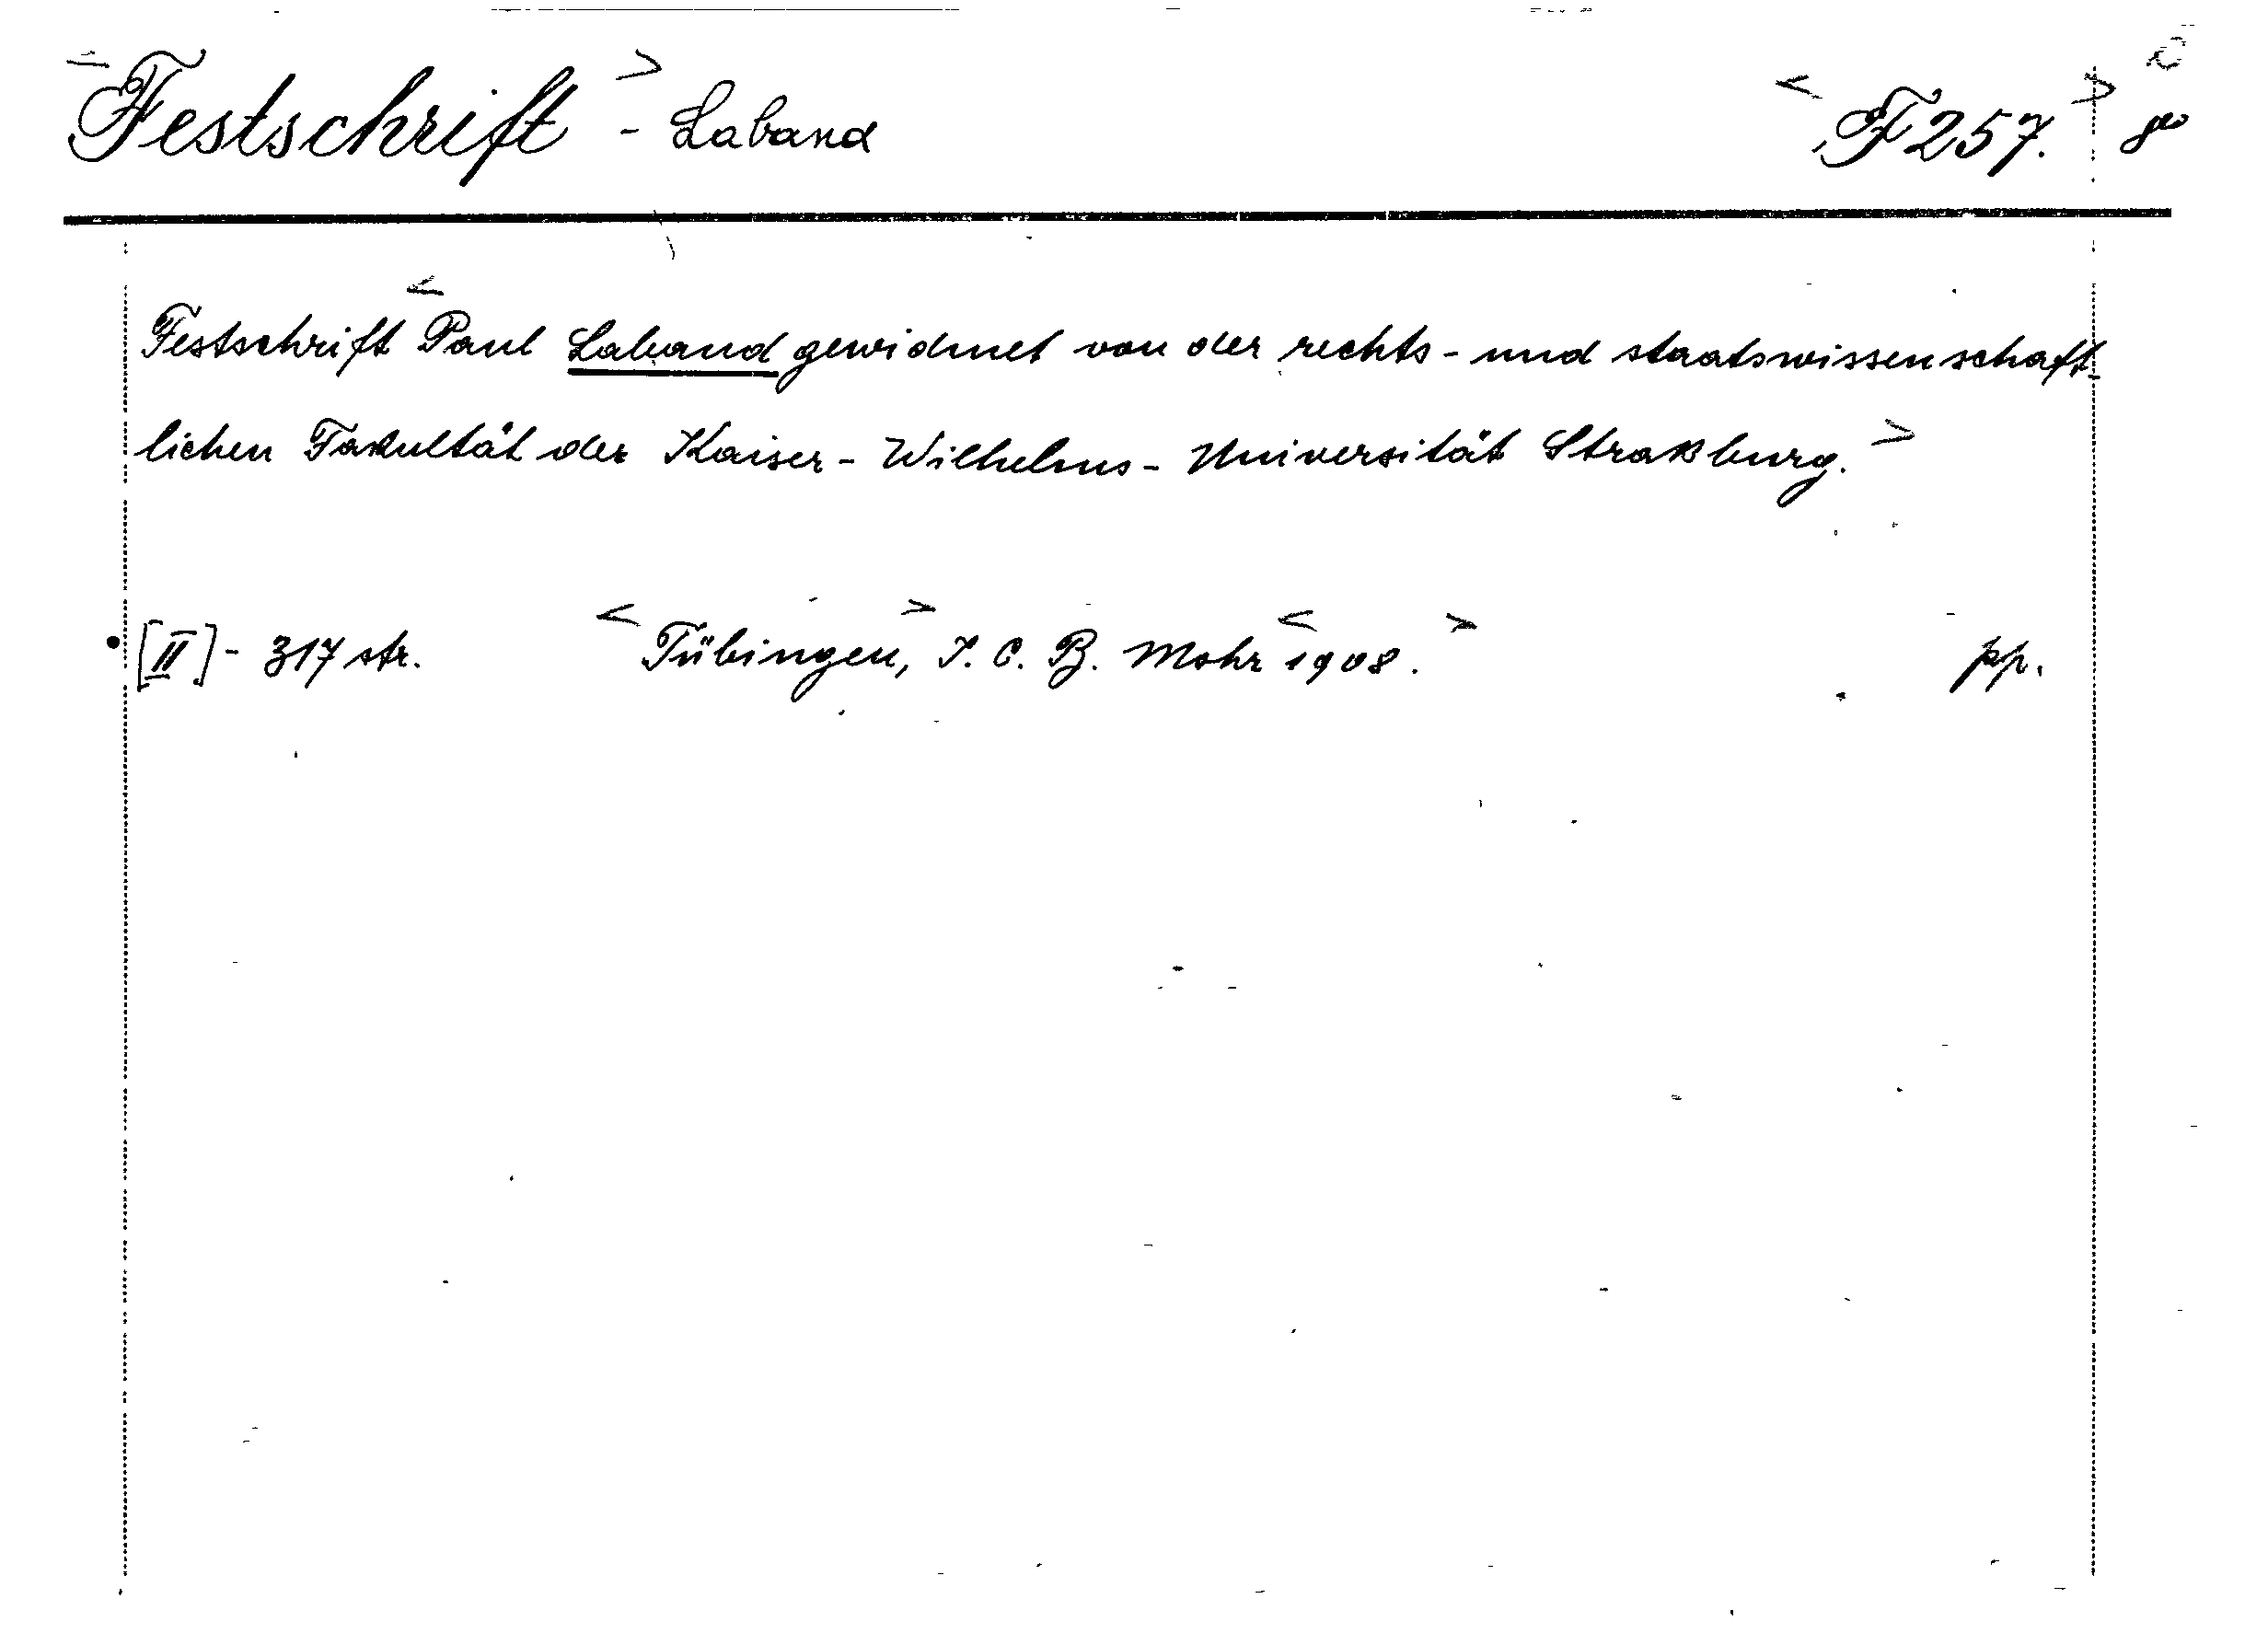 <Festschrift> - Laband <F257.>
Festschrift <Paul Laband gewidmet von der rechts- und staatswissenschaft-
lichen Fakultät der Kaiser-Wilhelms-Universität Straßburg.>
[II] - 317 str. <Tübingen,> J. C. B. Mohr <1908.> pp.